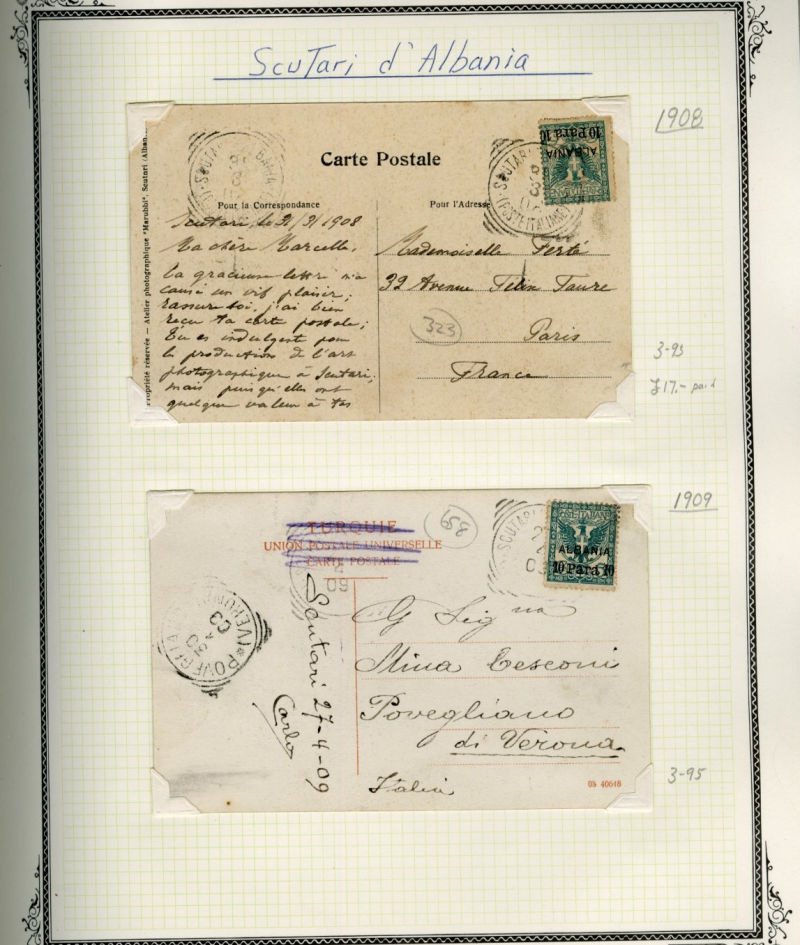 Scutari d'Albania
1908
Propriété réservée — Atelier photographique "Marubbi", Scutari (Alban
Carte Postale
Pour la Correspondance
Pour l'Adresse
10 Para 10
ALBANIA
SCUTARI
(POSTE ITALIANE)
Scutari le 31/3/1908
Ma chère Marcelle,
Ta gracieuse lettre m'a
causé un vif plaisir;
rassure toi, j'ai bien
reçu ta carte postale;
Tu es indulgente pour
la production de l'art
photographique à Scutari;
mais puis qu'elles ont
quelque valeur à tes
Mademoiselle Ferté
32 Avenue Félix Faure
Paris
France
323
3-93
£17.- paid
1909
TURQUIE
UNION POSTALE UNIVERSELLE
CARTE POSTALE
658
SCUTARI
ALBANIA
10 Para 10
09
POVEGLIANO
(VERONA)
Scutari 27-4-09
Carlo
G. Signa
Mina Cesconi
Povegliano
di Verona
Italia
Gh 40648
3-95